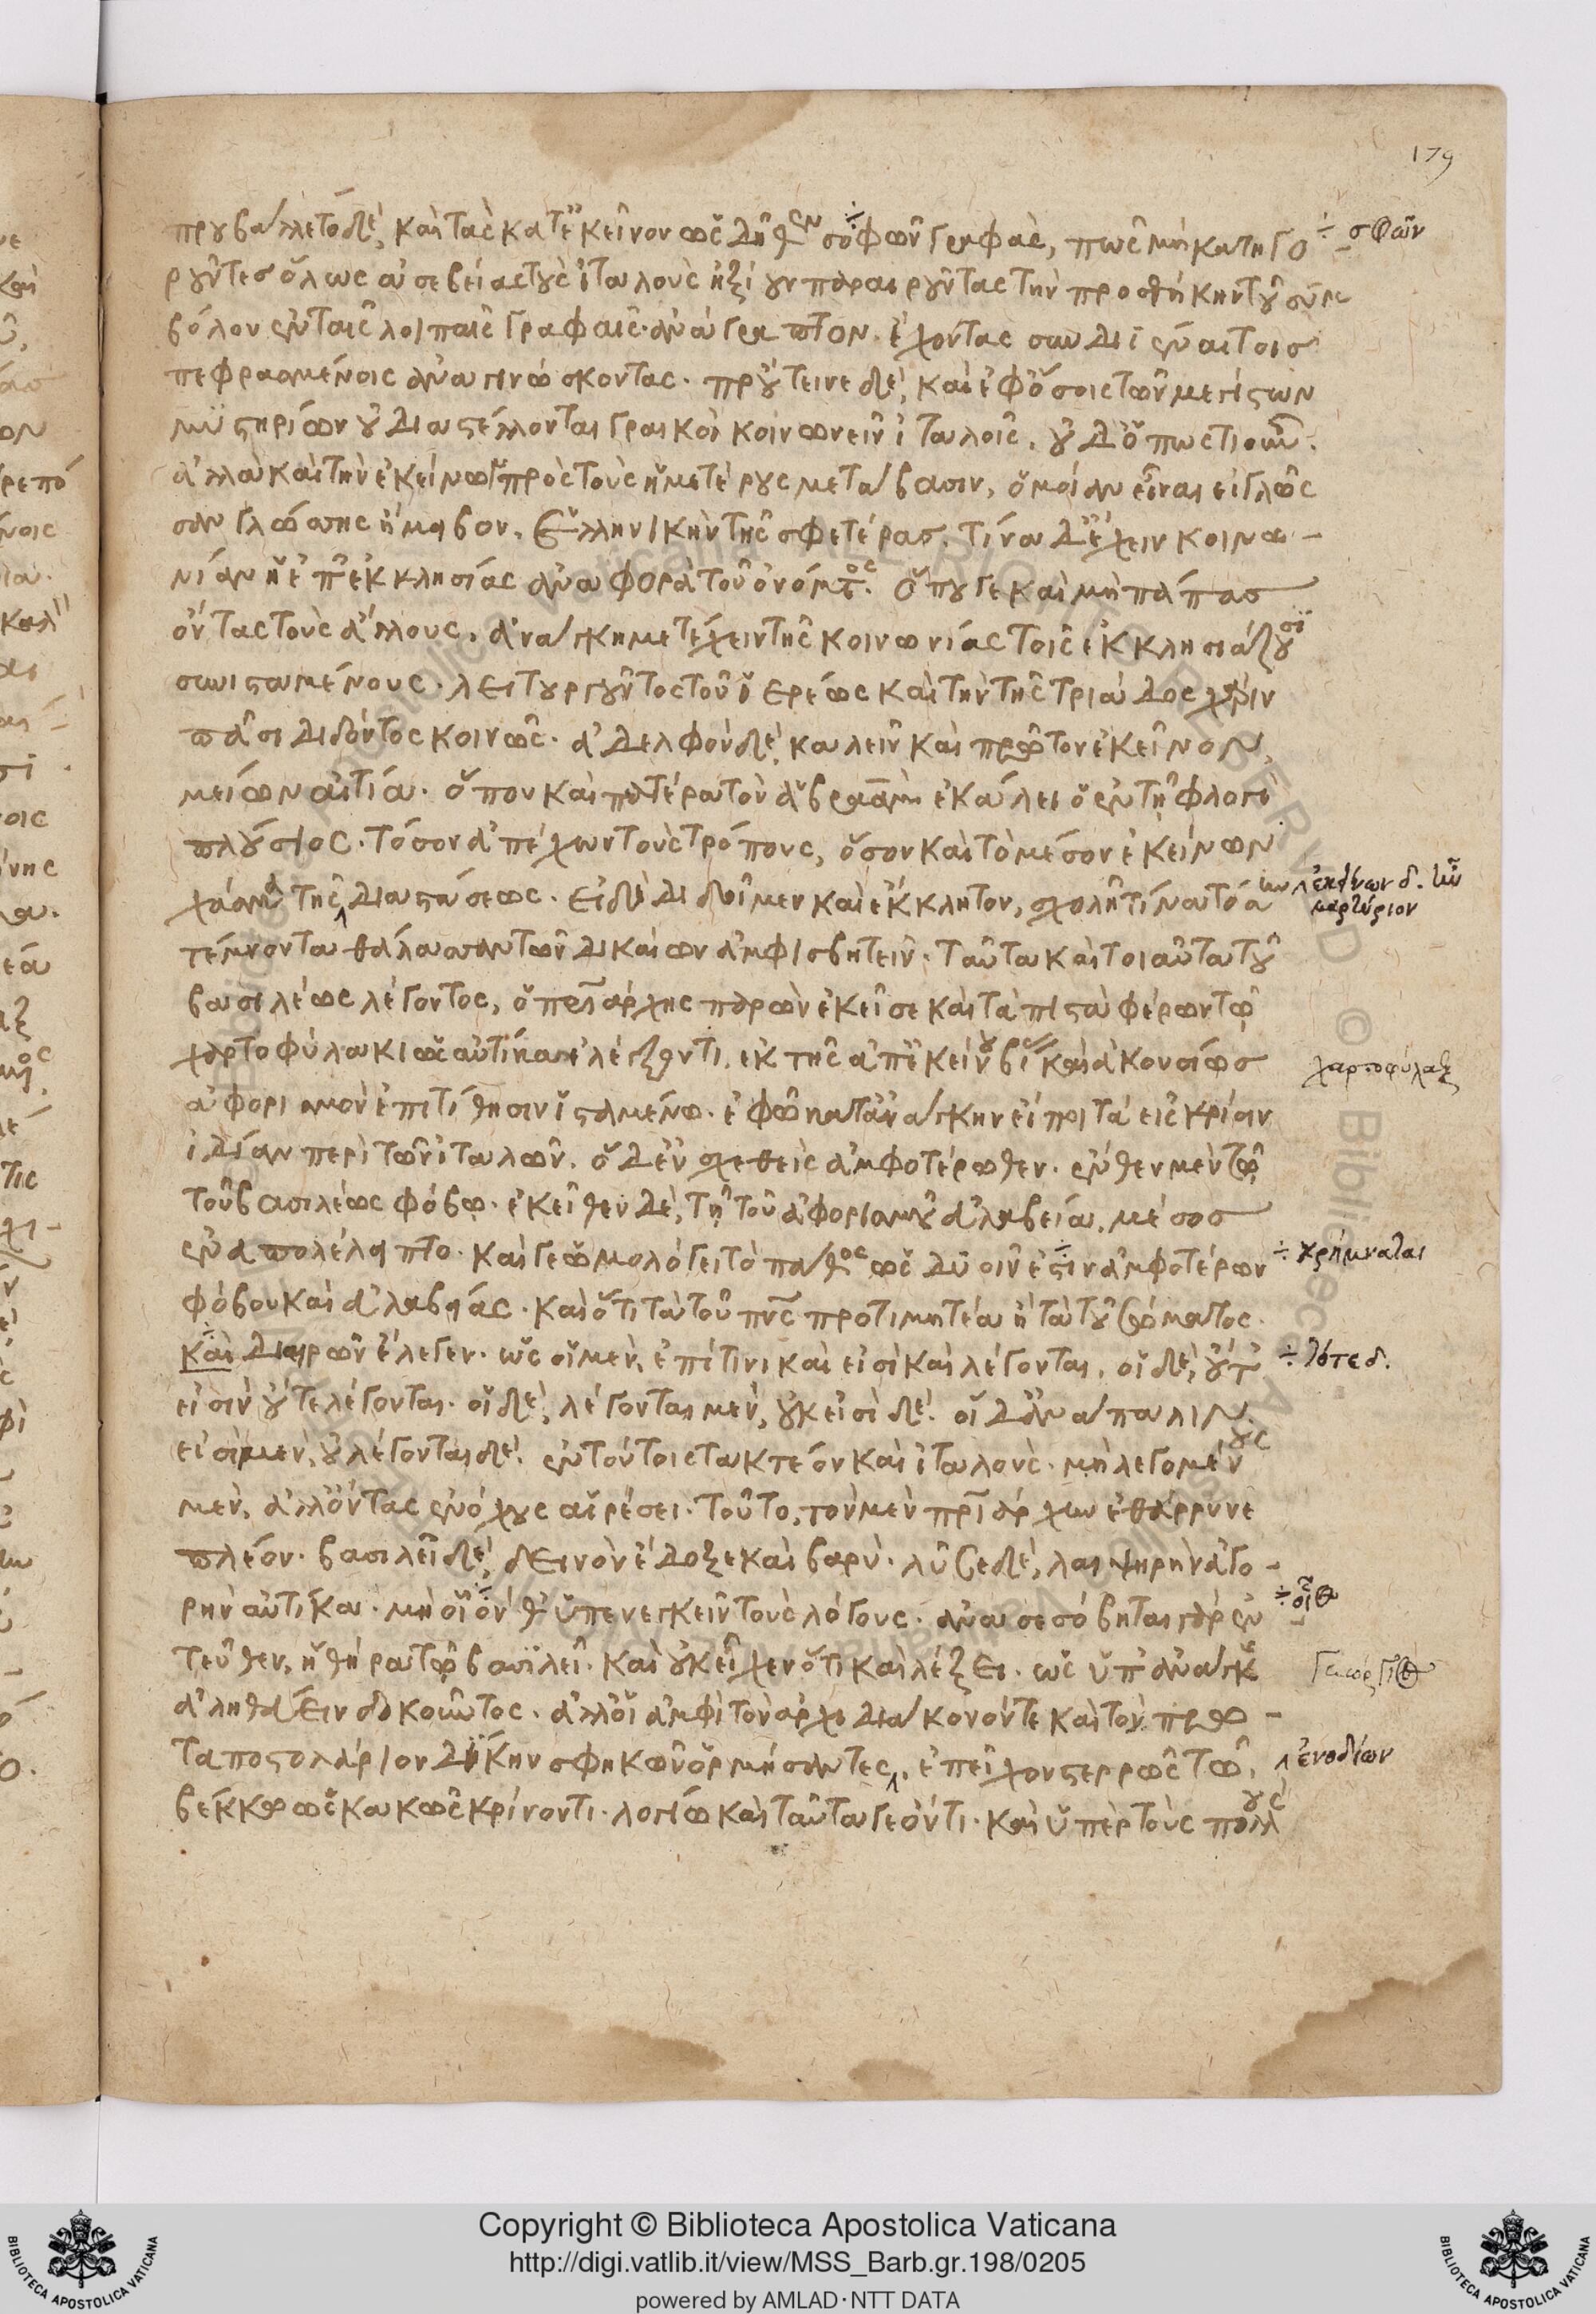 179
προυβάλλετο δὲ, καὶ τὰς κατ' ἐκεῖνον ὡς δῆθεν σοφῶν γραφὰς, πῶς μὴ κατηγο
ροῦντες ὅλως ἀσεβείας τοὺς ἰταλοὺς ἠξίουν παραιροῦντας τὴν προσθήκην τοῦ συμ
βόλου ἐν ταῖς λοιπαῖς γραφαῖς ἀνάγραπτον. ἔχοντας
πεφρασμένοις ἀναγινώσκοντας. προὔτεινε δὲ, καὶ ἐφ' ὅσοις τῶν μεγίστων
μυστηρίων οὐ διαστέλλονται γραικοὶ κοινωνεῖν ἰταλοῖς. οὐδ' ὅπως τιοῦν.
ἀλλὰ καὶ τὴν ἐκείνων πρὸς τοὺς ἡμετέρους μετάβασιν, ὁμοίαν εἶναι εἰ γλῶς
σαν γλώσσης ἤμειβον. ἑλληνικὴν τῆς σφετέρας. τίνα δ' ἔχειν κοινω-
νίαν ἢ ἐπ' ἐκκλησίας ἀναφορὰ τοῦ ὀνόματος. ὅπου γε καὶ μὴ πάπας
ὄντας τοὺς ἄλλους. ἀνάγκη μετέχειν τῆς κοινωνίας τοῖς ἐκκλησιάζουσι
συνισταμένους. λειτουργοῦντος τοῦ ἱερέως καὶ τὴν τῆς τριάδος χάριν
πᾶσι διδόντος κοινῶς. ἀδελφὸν δὲ, καλεῖν καὶ πρῶτον ἐκεῖνον,
μείων αἰτία. ὅπου καὶ πατέρα τὸν ἀβραὰμ ἐκάλει ὁ ἐν τῇ φλογὶ
πλούσιος. τόσον ἀπέχων τοὺς τρόπους, ὅσον καὶ τὸ μέσον ἐκείνων
χάσμα τῆς διαστάσεως. εἰ δὲ διδοῖμεν καὶ ἔκκλητον, σχολῇ τίνα τόσα
τέμνοντα θάλασσαν τῶν δικαίων ἀμφισβητεῖν. ταῦτα καὶ τοιαῦτα τοῦ
βασιλέως λέγοντος, ὁ πατριάρχης παρὼν ἐκεῖσε καὶ τὰ πιστὰ φέρων τῷ
χαρτοφύλακι ὡς αὐτίκα ἐλέγξοντι. ἐκ τῆς ἀπ' ἐκείνου βίας καὶ ἀκουσίως
ἀφορισμὸν ἐπιτίθησιν ἱσταμένῳ. ἐφ' ᾧ κατ' ἀνάγκην εἴποι τὰ εἰς κρίσιν
ἰδίαν περὶ τῶν ἰταλῶν. ὁ δ' ἐν σχεθεὶς ἀμφοτέρωθεν. ἔνθεν μὲν τῷ
τοῦ βασιλέως φόβῳ. ἐκεῖθεν δὲ, τῇ τοῦ ἀφορισμοῦ εὐλαβείᾳ, μέσος
ἐναπολέληπτο. καί γε ὡμολόγει τὸ πάθος ὡς δυοῖν ἐστιν ἀμφοτέρων
φόβου καὶ εὐλαβείας. καὶ ὅτι τὰ τοῦ πνς προτιμητέα ἢ τὰ τοῦ σώματος.
καὶ διαιρῶν ἔλεγεν. ὡς οἱ μὲν, ἐπί τινι καὶ εἰσὶ καὶ λέγονται, οἱ δὲ, οὔτ'
εἰσὶν οὔτε λέγονται. οἱ δὲ, λέγονται μὲν, οὐκ εἰσὶ δέ. οἱ δ' ἀνάπαλιν.
εἰσὶ μὲν, οὐ λέγονται δέ. ἐν τούτοις τακτέον καὶ ἰταλούς. μὴ λεγομένους
μὲν, ἀλλ' ὄντας ἐνόχους αἱρέσει. τοῦτο, τὸν μὲν πριάρχην ἐθάρρυνε
πλέον. βασιλεῖ δὲ, δεινὸν ἔδοξε καὶ βαρύ. λύει δὲ, λαιψηρὴν ἀγο-
ρὴν αὐτίκα. μὴ οἷόν θ' ὑπενεγκεῖν τοὺς λόγους. ἀνασεσόβηται γὰρ ἐν
τεῦθεν, ἡ θήρα τῷ βασιλεῖ. καὶ οὐκ εἶχεν ὅτι καὶ λέξει. ὡς ὑπ' ἀνάγκης
ἀληθεύειν δοκοῦντος. ἀλλ' οἱ ἀμφὶ τὸν ἀρχιδιάκονόν τε καὶ τὸν πρω-
ταποστολάριον δίκην σφηκῶν ὁρμήσαντες, ἐπεῖχον στερρῶς τῷ
βέκκῳ ὡς κακῶς κρίνοντι. λογίῳ καὶ ταῦτά γε ὄντι. καὶ ὑπὲρ τοὺς πολλοὺς
÷ σφῶν
μαρτύριον
χαρτοφύλαξ
÷ κρήμναται
÷ λότε δ.
÷ οἷός
Γεώργιος
ἐνοδίων
Copyright © Biblioteca Apostolica Vaticana
http://digi.vatlib.it/view/MSS_Barb.gr.198/0205
powered by AMLAD·NTT DATA